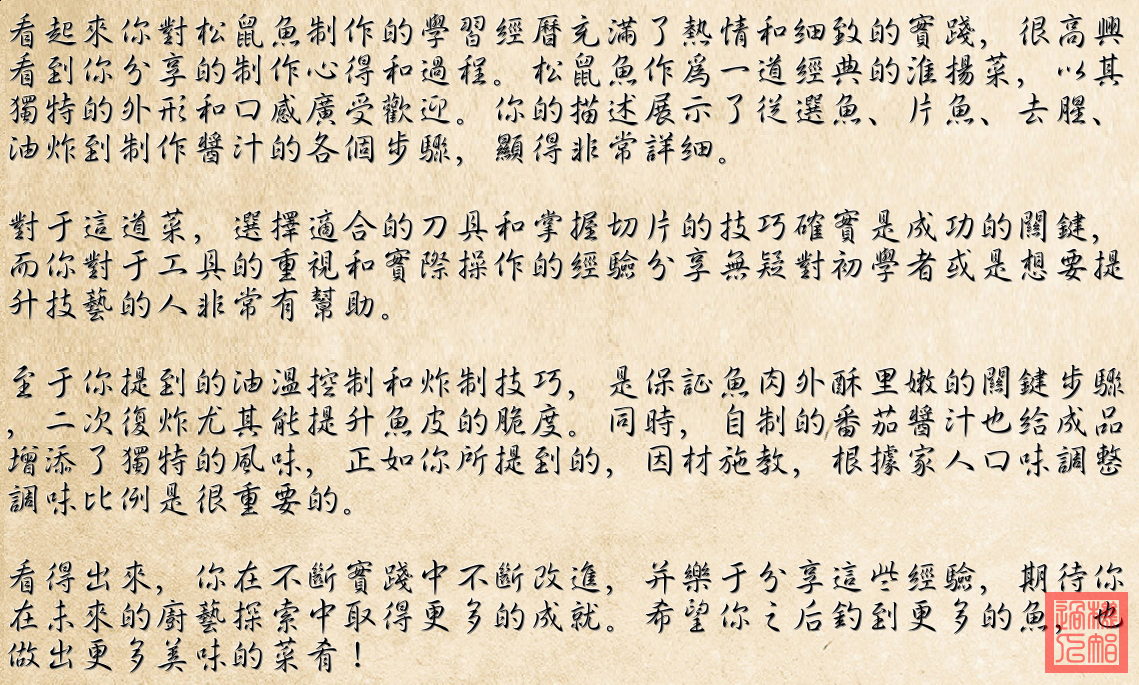 看起來你對松鼠魚制作的學習經曆充滿了熱情和細致的實踐，很高興
看到你分享的制作心得和過程。松鼠魚作爲一道經典的淮揚菜，以其
獨特的外形和口感廣受歡迎。你的描述展示了從選魚、片魚、去腥、
油炸到制作醬汁的各個步驟，顯得非常詳細。
對于這道菜，選擇適合的刀具和掌握切片的技巧確實是成功的關鍵，
而你對于工具的重視和實際操作的經驗分享無疑對初學者或是想要提
升技藝的人非常有幫助。
至于你提到的油溫控制和炸制技巧，是保証魚肉外酥里嫩的關鍵步驟
，二次復炸尤其能提升魚皮的脆度。同時，自制的番茄醬汁也给成品
增添了獨特的風味，正如你所提到的，因材施教，根據家人口味調整
調味比例是很重要的。
看得出來，你在不斷實踐中不斷改進，并樂于分享這些經驗，期待你
在未來的廚藝探索中取得更多的成就。希望你之后釣到更多的魚，也
做出更多美味的菜肴！